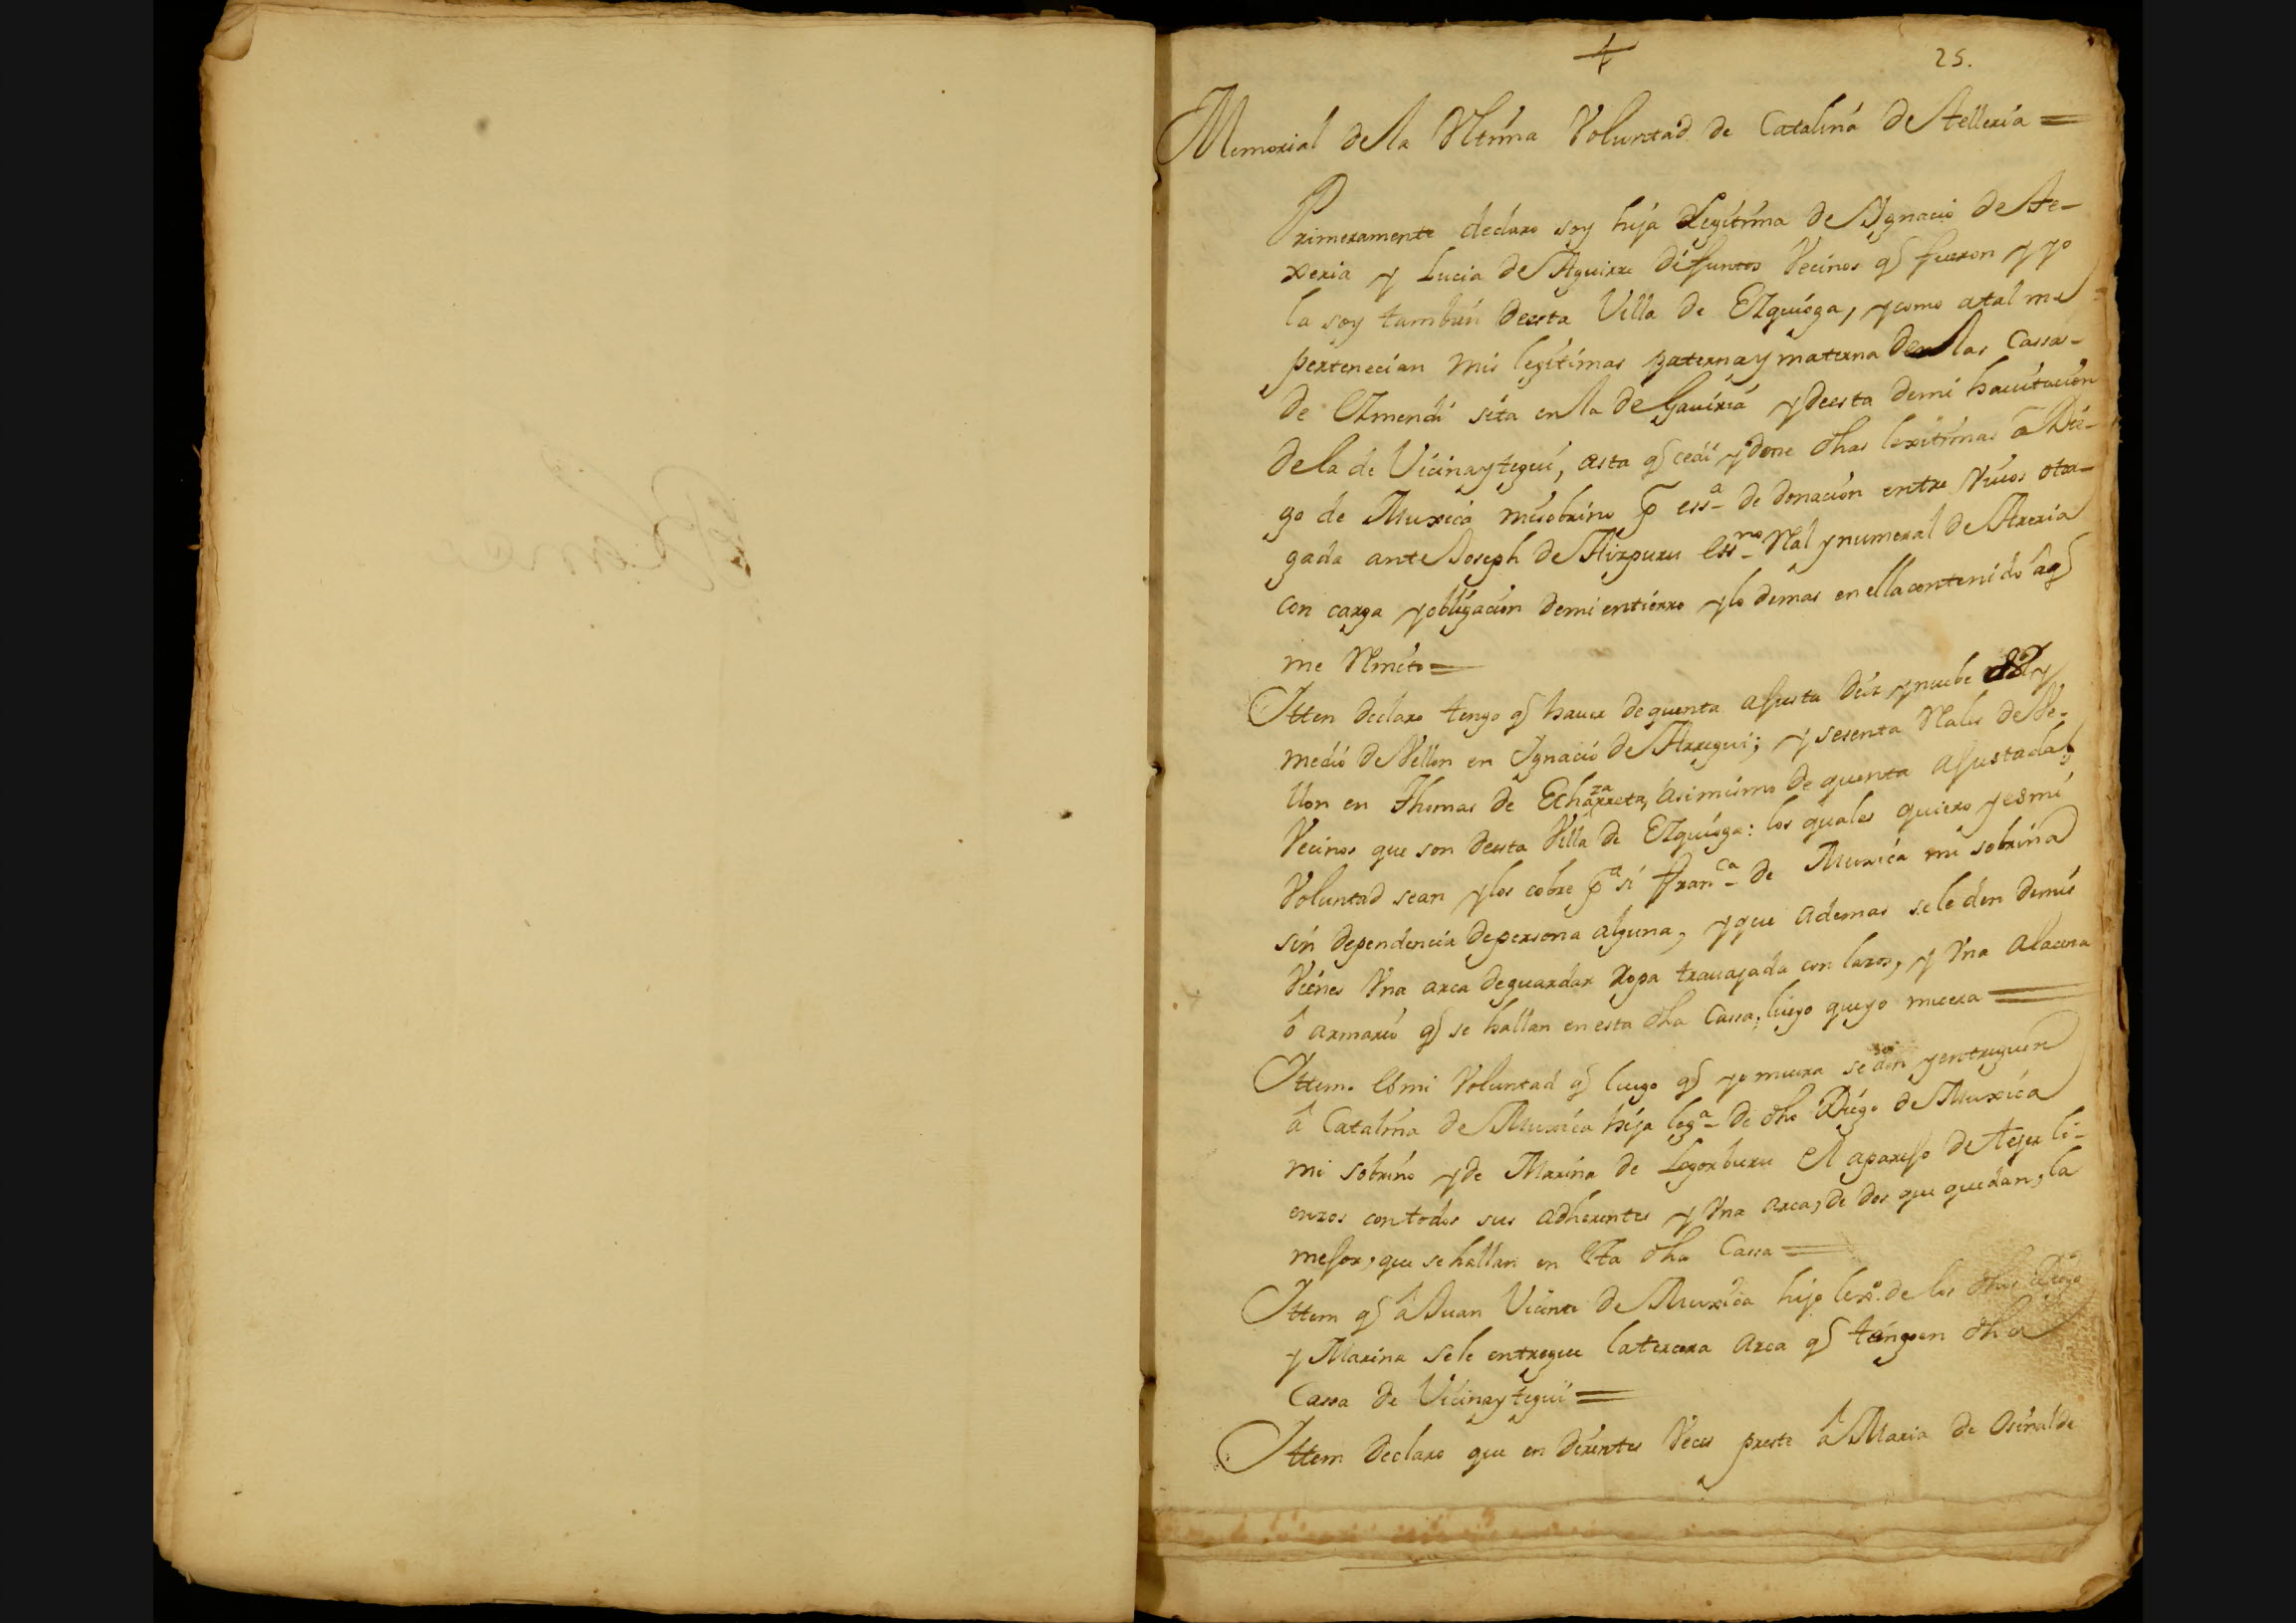 25.
Memorial de la Vltima Voluntad de Catalina de Atelleria =
Primeramente declaro soy hija Legitima de Ygnacio de Ate-
xeria y Lucia de Aguirre difuntos Vecinos q̃ fueron y yo
la soy tambien de esta Villa de Ezquioga, y como a tal me
pertenecian mis legitimas paterna y materna den las Cassas
de Ezmendi sita en la de Gaviria y de esta de mi havitacion
de la de Vicinaytegui, asta q̃ cedi y done dhas lexitimas â Die-
go de Muxica mi sobrino p̃ essª de donacion entre Vivos otor-
gada ante Joseph de Aizpuru Essno Rl y numeral de Areria
con carga y obligacion de mi entierro y lo demas en ella contenido âq̃
me Rmito =
Itten declaro tengo q̃ haver de quenta ajusta diez y nuebe y
medio de Vellon en Ignacio de Arregui; y sesenta Rales de Ve-
llon en Thomas de Echazarreta, asimismo de quenta ajustada,
Vecinos que son de esta Villa de Ezquioga: los quales quiero y es mi
Voluntad sean y los cobre pª si Franca de Muxica mi sobrina
sin dependencia de persona alguna, y que ademas se le den de mis
Vienes Vna arca de guardar Ropa travajada con lazos, y Vna alacena
ô armario q̃ se hallan en esta dha Cassa, luego que yo muera =
Ittem. Es mi Voluntad q̃ luego q̃ yo muera se den y entreguen
â Catalina de Muxica hija legª de dho Diego de Muxica
mi sobrino y de Marina de Legorburu el aparejo de tejer li-
enzos con todos sus adherentes y Vna arca, de dos que quedan, la
mejor, que se hallan en Eta dha Cassa =
Ittem q̃ â Juan Vicente de Muxica hijo lexº. de los dhos Diego
y Marina se le entregue la tercera arca q̃ tengo en dha
Cassa de Vicinaytegui =
Ittem Declaro que en diferentes Veces preste â Maria de Osinalde